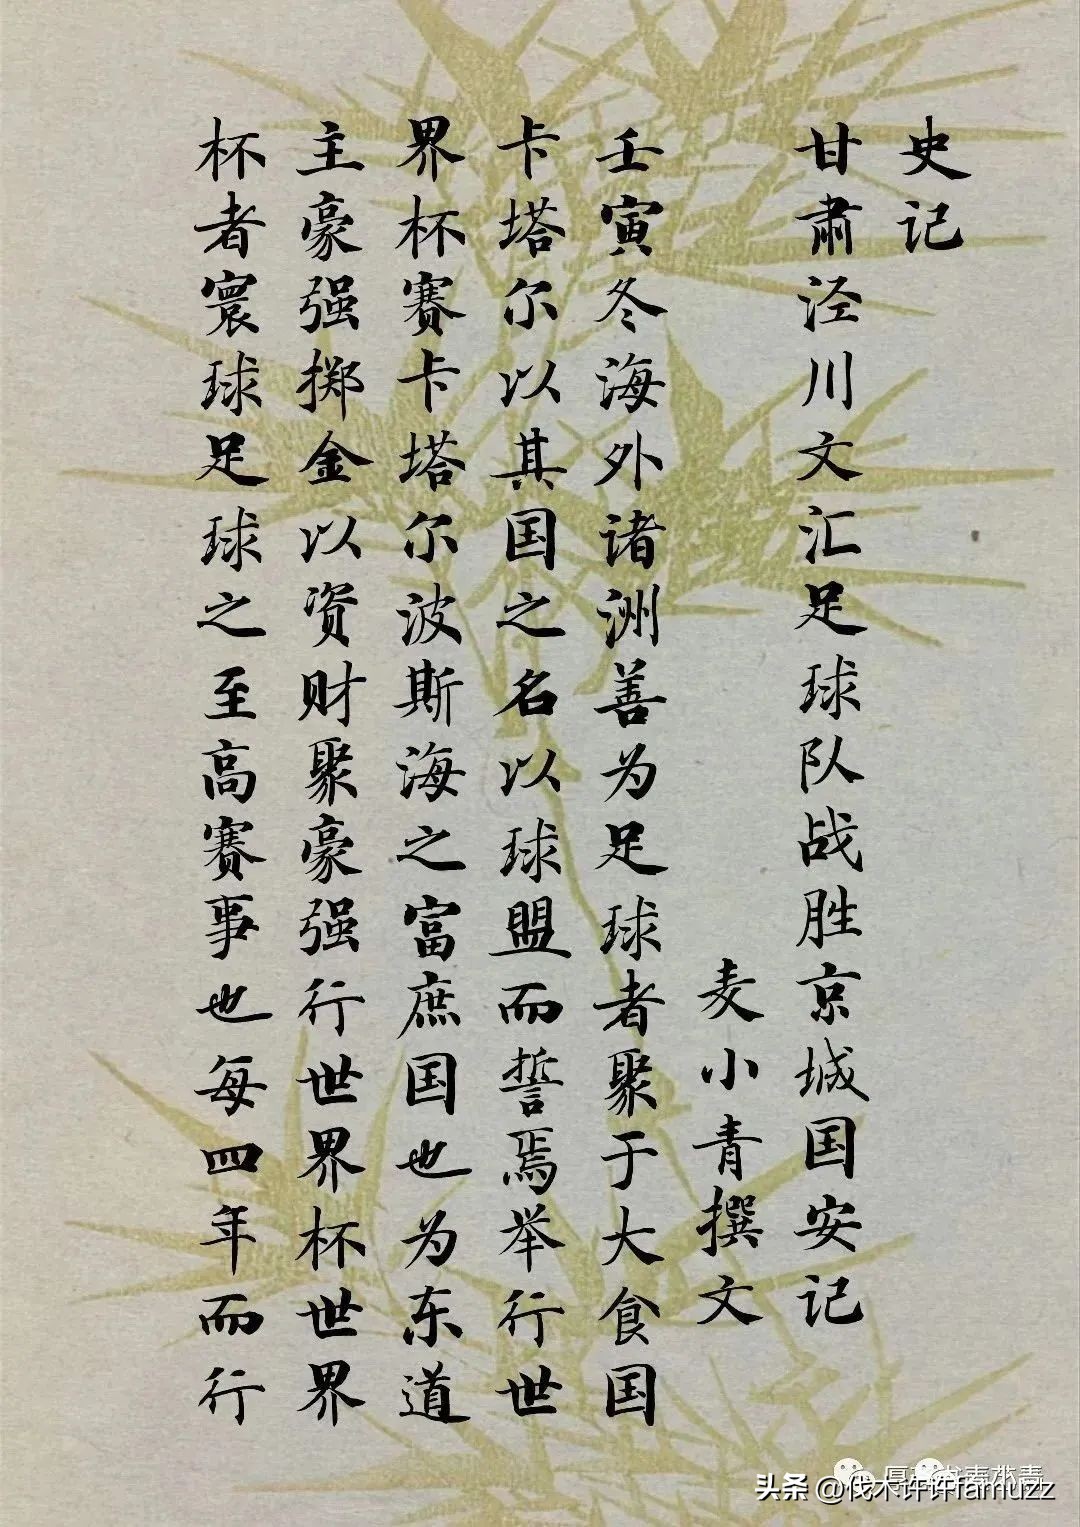 史记
甘肃泾川文汇足球队战胜京城国安记
麦小青撰文
壬寅冬海外诸洲善为足球者聚于大食国
卡塔尔以其国之名以球盟而誓焉举行世
界杯赛卡塔尔波斯海之富庶国也为东道
主豪强掷金以资财聚豪强行世界杯世界
杯者寰球足球之至高赛事也每四年而行
头条 @伐木许许famuzz